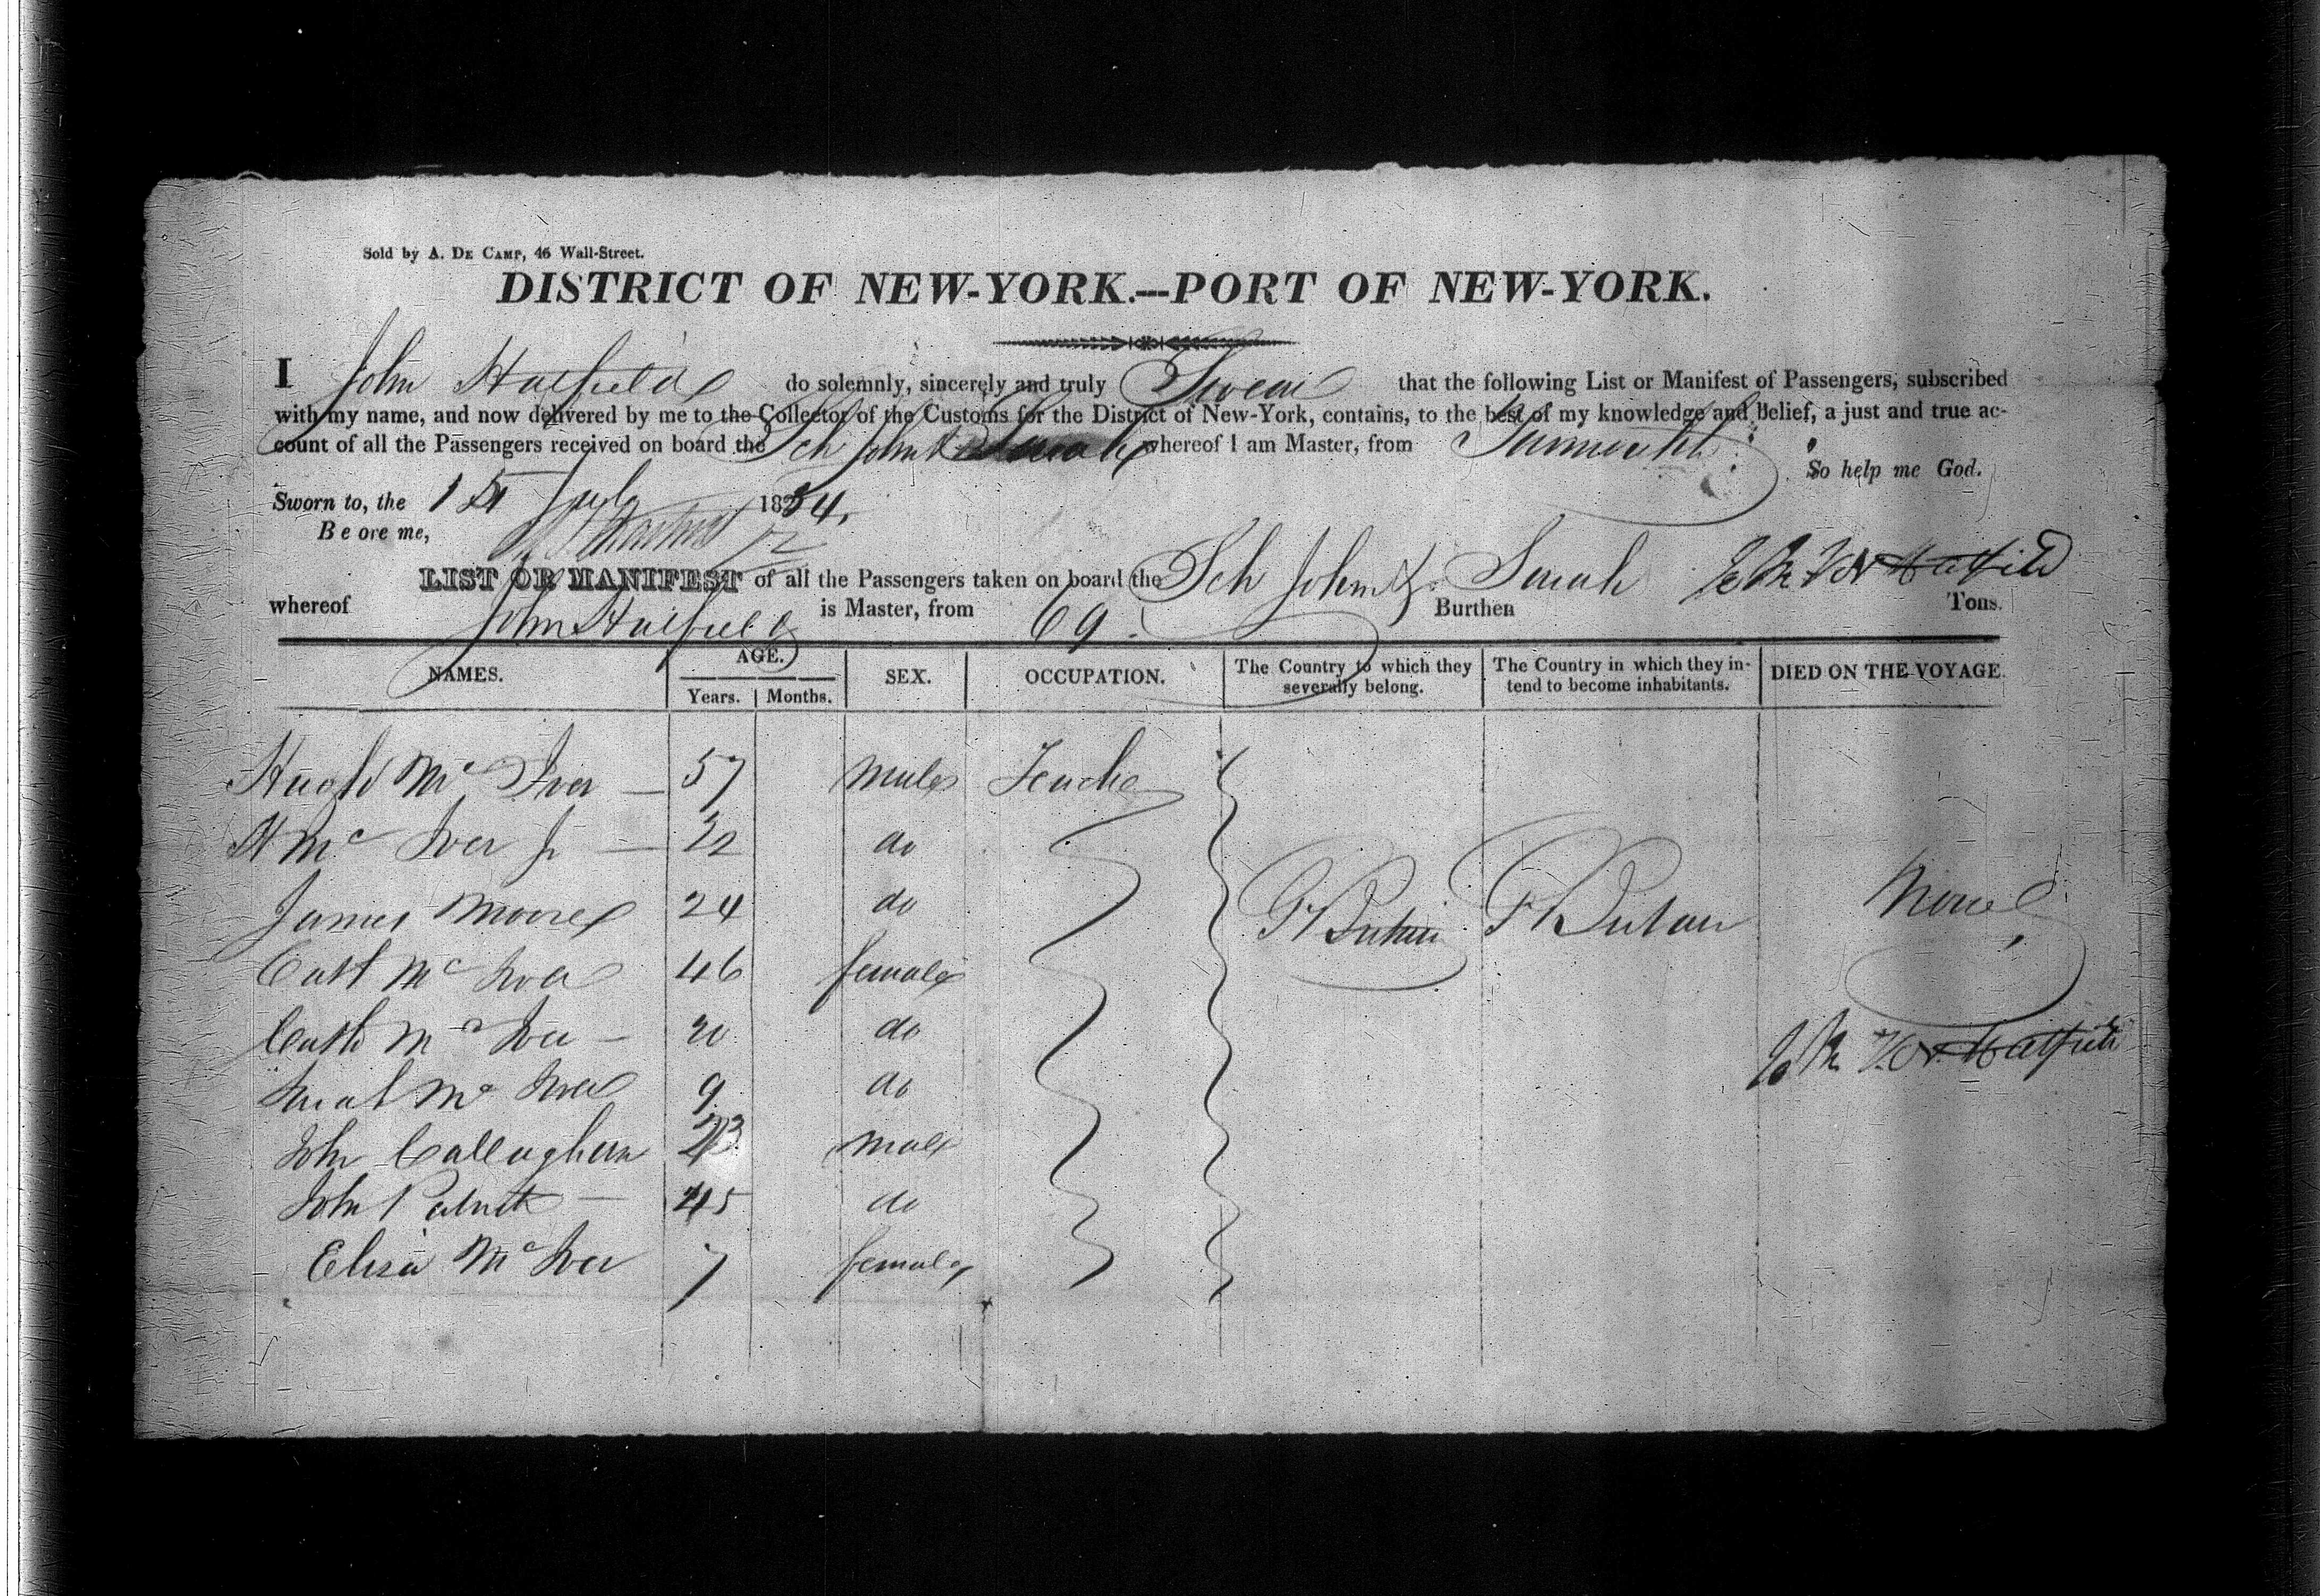 Sold by A. De Camp, 46 Wall-Street.
DISTRICT OF NEW-YORK.---PORT OF NEW-YORK.
I John Hatfield do solemnly, sincerely and truly Swear that the following List or Manifest of Passengers, subscribed
with my name, and now delivered by me to the Collector of the Customs for the District of New-York, contains, to the best of my knowledge and belief, a just and true ac-
count of all the Passengers received on board the Sch John & Sarah whereof I am Master, from Yarmouth
So help me God.
Sworn to, the 15 July 1834,
Be ore me,
LIST OR MANIFEST of all the Passengers taken on board the Sch John & Sarah
whereof John Hatfield is Master, from 69. Burthen Tons.
NAMES. AGE. SEX. OCCUPATION. The Country to which they severally belong. The Country in which they in-tend to become inhabitants. DIED ON THE VOYAGE.
Years. Months.
Hugh Mc Iver — 57 Male Teacher
H Mc Iver Jr — 22 do
James Moore 24 do G Britain G Britain None
Cath Mc Iver 46 female
Cath Mc Iver — 20 do
Sarah Mc Iver 9 do
John Callaghan 23 Male
John — 45 do
Eliza Mc Iver 7 female